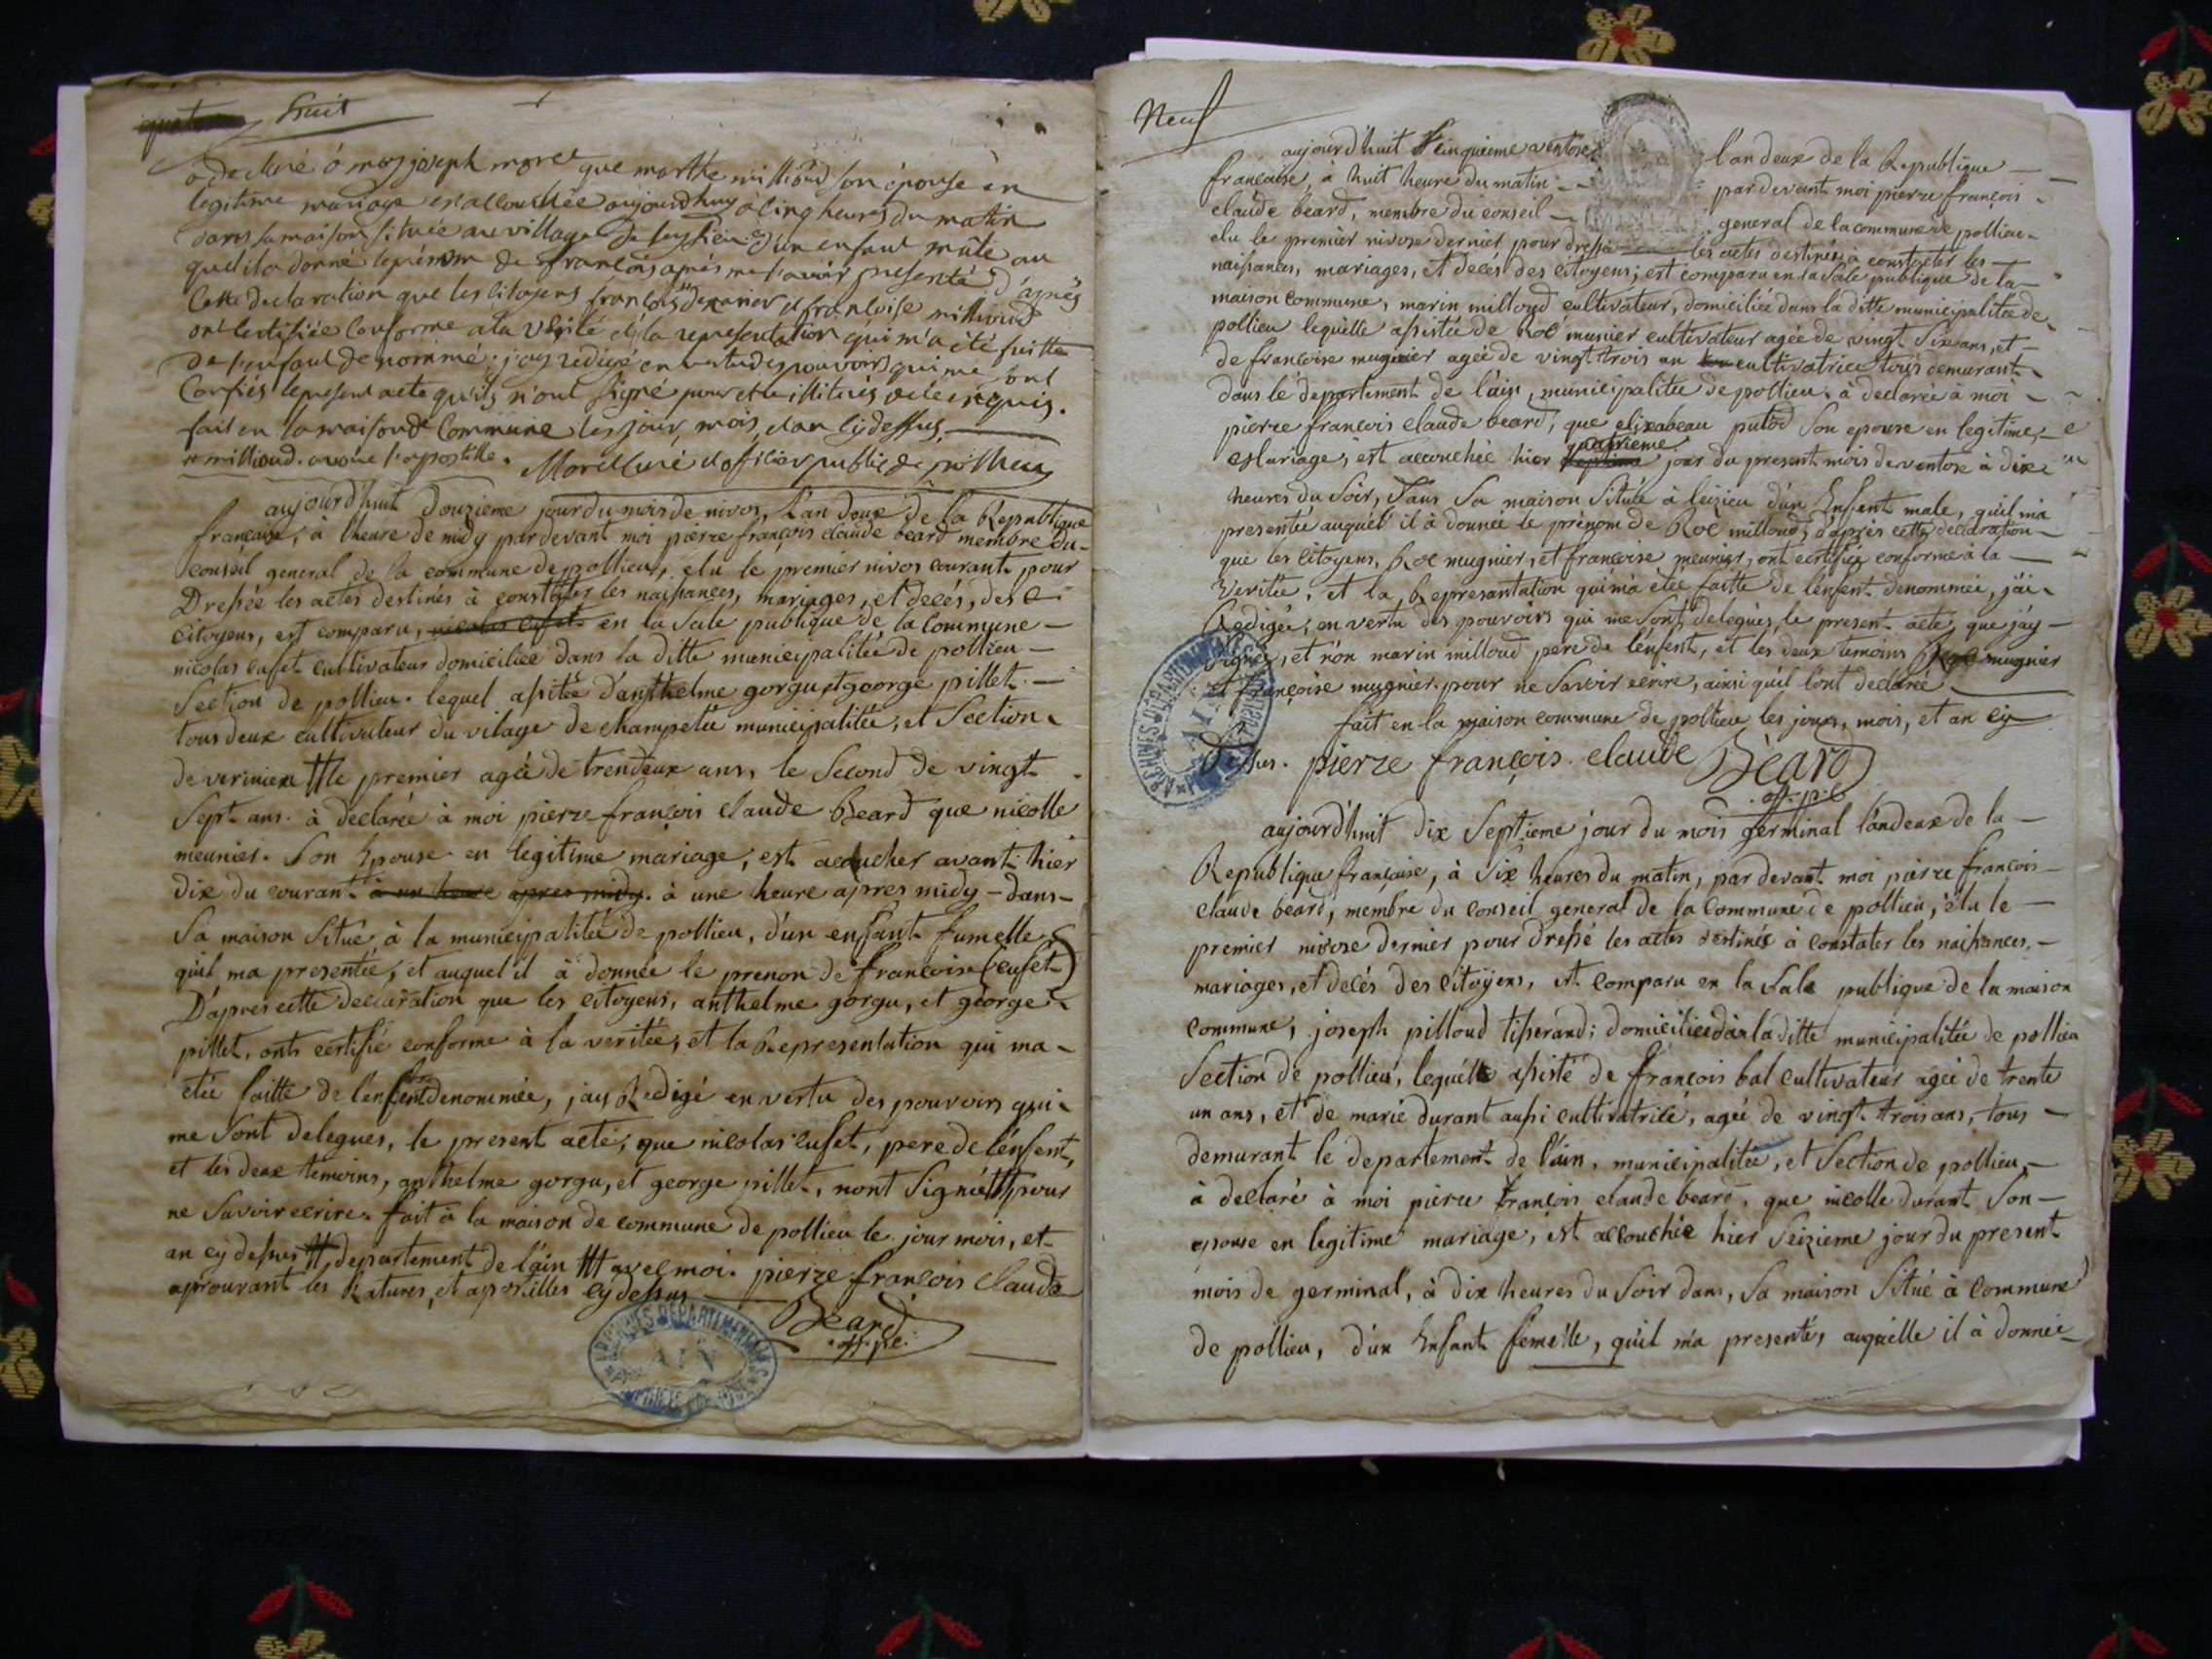 huit
a declaré a moy joseph morel que marthe millioud son épouse en
legitime mariage est accouchée aujourdhuy a cinq heures du matin
dans sa maison située au village de d'un enfant mâle au
quel il a donné le prénom de françois après me l'avoir presenté d'après
cette declaration que les citoyens françois et françoise millioud
ont certifiée conforme a la vérité et la representation qui m'a été faitte
de l'enfant denommé; j'ay redigé en vertu des pouvoirs qui me sont
confiés le present acte qu'ils n'ont signé pour etre illitérés de ce requis.
fait en la maison de commune les jour, mois, et an cy dessus
millioud. avoüe l'apostille. Morel curé et officier public de pollieu
aujourd'huit douzieme jour du mois de nivos, l'an deux de la Republique
française, à l'heure de midy pardevant moi pierre françois claude beard membre du
conseil general de la commune de pollieu, elu le premier nivos courant pour
Dressée les actes destinés à constater les naissances, mariages, et decés, des
citoyens, est comparu, nicolas cuset en la sale publique de la commune
nicolas cuset cultivateur domiciliée dans la ditte municipalitée de pollieu
Section de pollieu. lequel assitée d'anthelme gorgu, et george pillet.
tous deux cultivateur du vilage de champetée municipalitée, et section
de virinieu # le premier agée de trendeux ans, le second de vingt
sept ans. à declarée à moi pierre françois claude Beard que nicolle
meunier. Son Epouse en legitime mariage, est acoucher avant hier
dix du courant à un heure apres midy. à une heure apres midy – dans
Sa maison Situé à la municipalitée de pollieu, d'un enfant fumelle
quil ma presentée, et auquel il à donnée le prenon de francoise (cuset)
D'apres cette declaration que les citoyens, anthelme gorgu, et george
pillet, ont certifié conforme à la veritée, et la Representation qui ma
etée faitte de l'enfent denommée, jay Redigé en vertu des pouvoirs qui
me Sont delegues, le present acte, que nicolas cuset, pere de l'enfent,
et les deux temoins, anthelme gorgu, et george pillet, nont Signée # pour
ne Savoir ecrire. fait à la maison de commune de pollieu le jour mois, et
an cy dessus # departement de l'ain # avec moi. pierre françois claude
aprouvant les Ratures, et apostilles cy dessus
Beard
off. pc.
ARCHIVES DÉPARTEMENTALES
AIN
Neuf
aujourd'huit cinquieme ventose l'an deux de la Republique
française, à huit heure du matin pardevant moi pierre françois
claude beard, membre du conseil general de la commune de pollieu
elu le premier nivose dernier pour dressé les actes destinés à constater les
naissances, mariages, et decés des citoyens; est comparu en la sale publique de la
maison commune, marin milloud cultivateur, domiciliée dans la ditte municipalitée de
pollieu lequelle assistée de Roc munier cultivateur agée de vingt six ans, et
de francoise mugnier agée de vingt trois an cultivatrice tous demurant
dans le departement de l'ain, municipalitée de pollieu. à declarée à moi
pierre francois claude beard, que elizabeau putod son epouse en legitime
esmariage, est accouchée hier quatrieme jour du present mois de ventose à dix
heures du Soir, dans Sa maison Située à leizieu d'un Enfent male, quil ma
presentée auquel il à donnée le prénom de Roc milloud, d'après cette declaration
que les citoyens, Roc mugnier, et françoise meunier, ont certifiée conforme à la
Veritée, et la Représantation qui ma etée faitte de l'enfent denommée, j'ai
Redigée, en vertu des pouvoirs qui me Sont delegués, le present acte, que j'ay
Signée, et non marin milloud pere de l'enfent, et les deux temoins Roc mugnier
et françoise mugnier. pour ne Savoir ecrire, ainsi quil l'ont declarée
fait en la maison commune de pollieu les jours, mois, et an cy
Dessus. pierre françois claude Beard
off. p.c
aujourd'huit dix Septieme jour du mois germinal l'andeux de la
Republique française, à six heures du matin, par devant moi pierre francois
claude beard, membre du conseil general de la commune de pollieu, elu le
premier nivose dernier pour dressé les actes destinée à constater les naissances,
mariages, et decés des citoyens, est comparu en la sale publique de la maison
commune, joseph pilloud tisserand; domiciliée dan la ditte municipalitée de pollieu
Section de pollieu, lequelle assisté de françois bal cultivateur agée de trente
un ans, et de marie durant aussi cultivatrice, agée de vingt trois ans, tous
demurant le departement de l'ain, municipalitée, et section de pollieu,
à declaré à moi pierre françois claude beard, que nicolle durant Son
epouse en legitime mariage, est accouchée hier seizieme jour du present
mois de germinal, à dix heures du Soir dans, Sa maison Situé à commune
de pollieu, d'un Enfant femelle, quil m'a presentés auquelle il à donnée
ARCHIVES DÉPARTEMENTALES
AIN